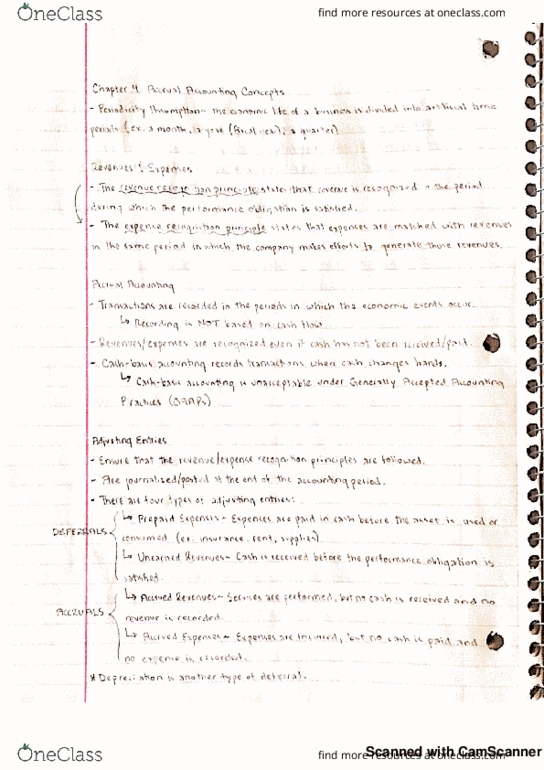 OneClass
find more resources at oneclass.com
Chapter 4: Accrual Accounting Concepts
- Periodicity Assumption - the economic life of a business is divided into artificial time
periods (ex. a month, a year (fiscal year), a quarter)
Revenues & Expenses
- The revenue recognition principle states that revenue is recognized in the period
during which the performance obligation is satisfied.
- The expense recognition principle states that expenses are matched with revenues
in the same period in which the company makes efforts to generate those revenues.
Accrual Accounting
- Transactions are recorded in the periods in which the economic events occur.
↳ Recording is NOT based on cash flow
- Revenues/expenses are recognized even if cash has not been received/paid.
- Cash-basis accounting records transactions when cash changes hands.
↳ Cash-basis accounting is unacceptable under Generally Accepted Accounting
Practices (GAAPs)
Adjusting Entries
- Ensure that the revenue/expense recognition principles are followed.
- Are journalized/posted at the end of the accounting period.
- There are four types of adjusting entries:
DEFERRALS
↳ Prepaid Expenses - Expenses are paid in cash before the asset is used or
consumed. (ex. insurance, rent, supplies)
↳ Unearned Revenues - Cash is received before the performance obligation is
satisfied.
ACCRUALS
↳ Accrued Revenues - Services are performed, but no cash is received and no
revenue is recorded.
↳ Accrued Expenses - Expenses are incurred, but no cash is paid and
no expense is recorded.
* Depreciation is another type of deferral.
OneClass
find more resources at oneclass.com
Scanned with CamScanner